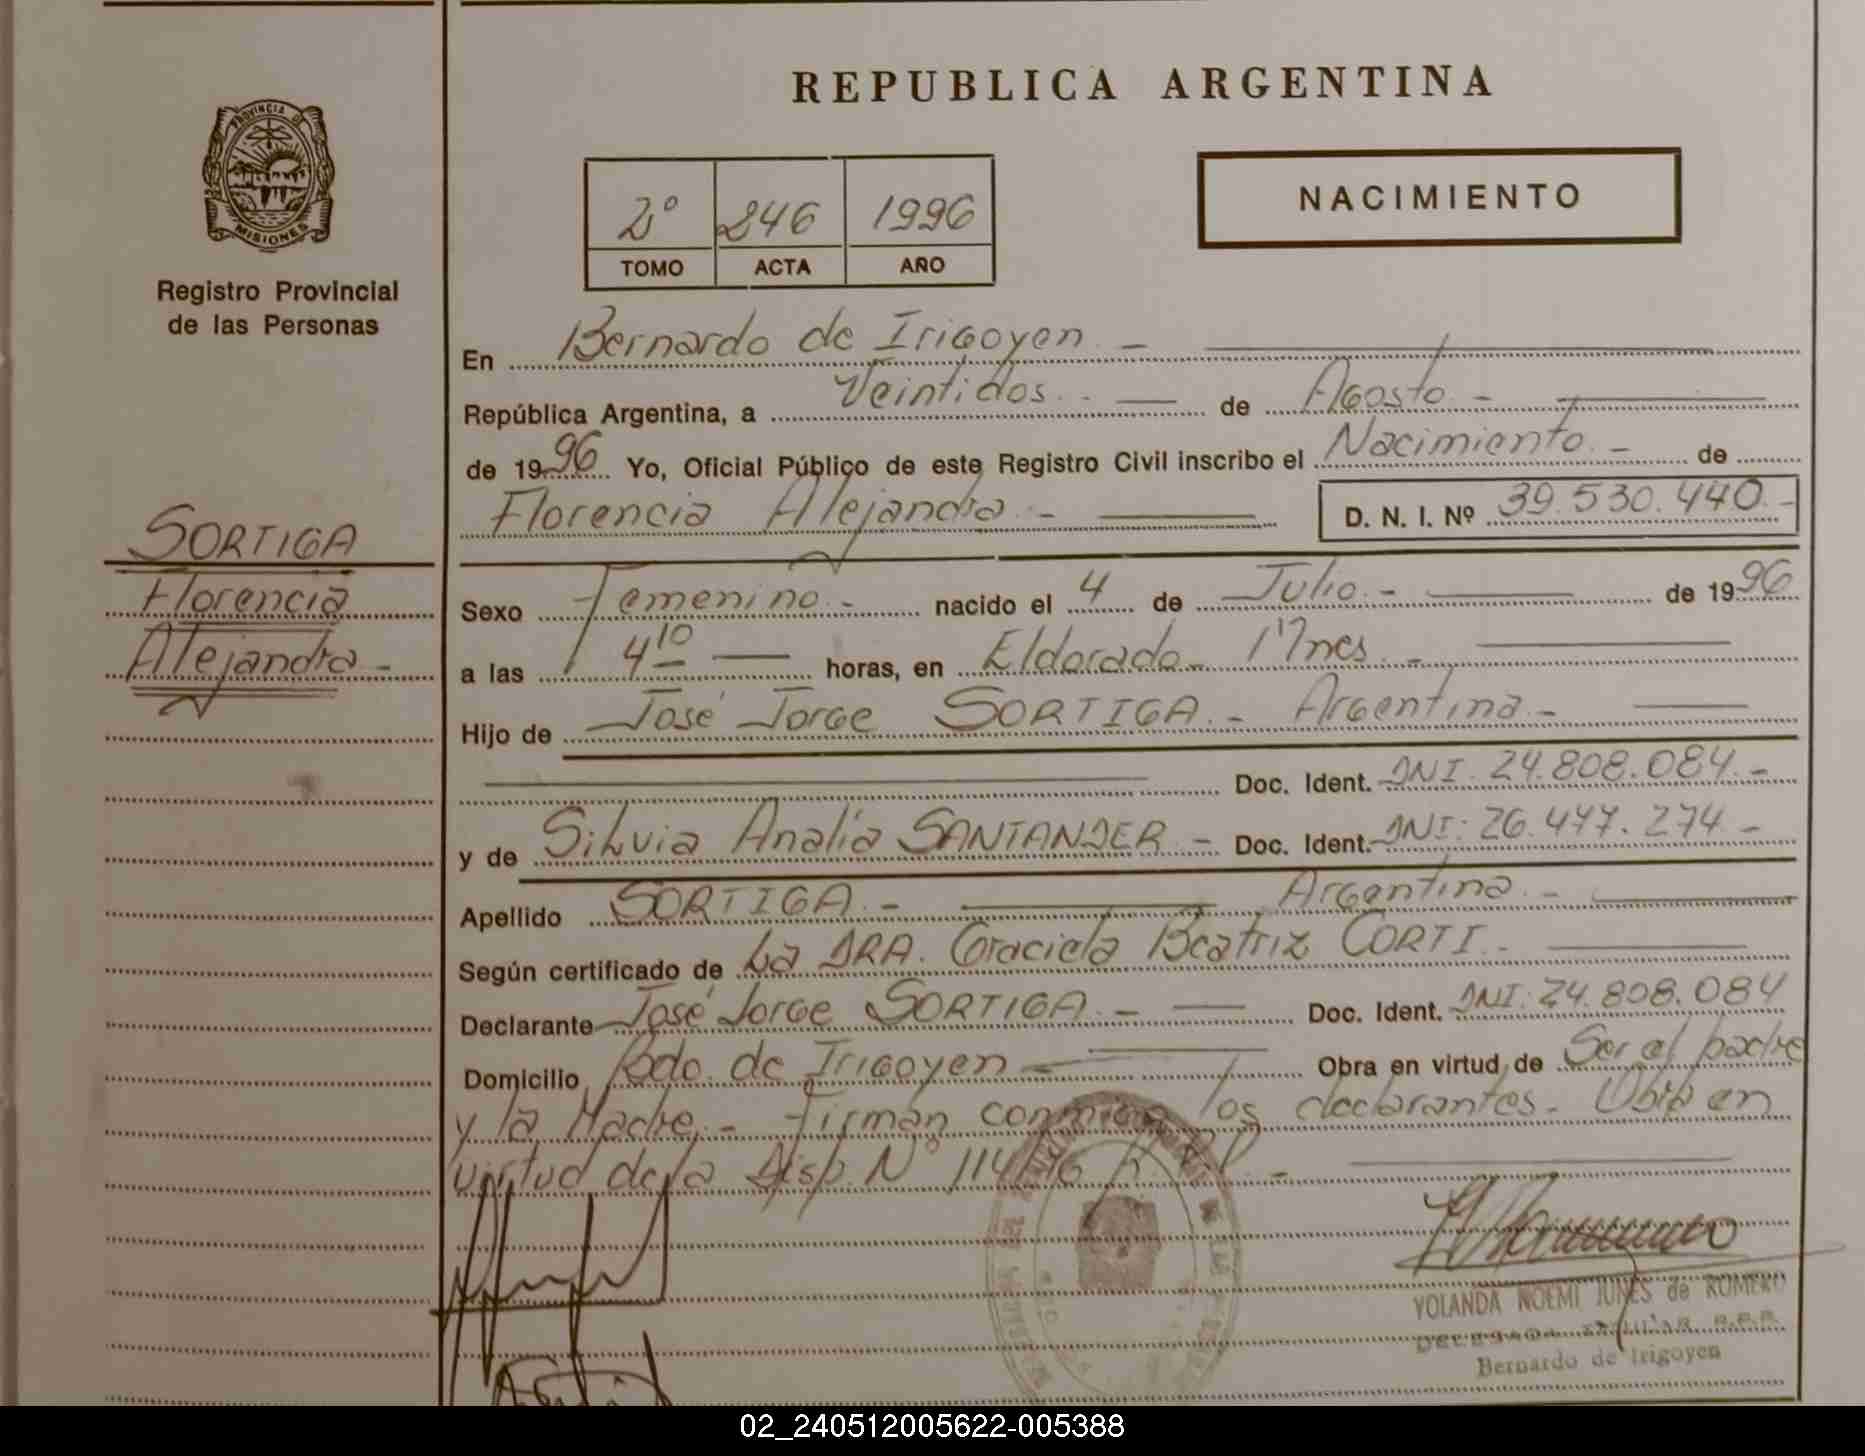 REPUBLICA ARGENTINA
PROVINCIA DE
MISIONES
Registro Provincial
de las Personas
2º 246 1996
TOMO ACTA AÑO
NACIMIENTO
En Bernardo de Irigoyen. -
República Argentina, a Veintidos. - de Agosto. -
de 1996 Yo, Oficial Público de este Registro Civil inscribo el Nacimiento. - de
Florencia Alejandra. - D. N. I. Nº 39.530.440. -
SORTIGA
Florencia
Alejandra. -
Sexo Femenino. - nacido el 4 de Julio. - de 1996
a las 4 10 horas, en Eldorado - Mnes. -
Hijo de José Jorge SORTIGA. - Argentina. -
Doc. Ident. DNI. 24.808.084. -
y de Silvia Analía SANTANDER. - Doc. Ident. DNI: 26.477.274. -
Apellido SORTIGA. - Argentina. -
Según certificado de La DRA. Graciela Beatriz CORTI. -
Declarante José Jorge SORTIGA. - Doc. Ident. DNI: 24.808.084
Domicilio Bdo. de Irigoyen - Obra en virtud de Ser el padre
y la Madre. - Firman conmigo los declarantes. -
virtud de la Disp. Nº 114/96
YOLANDA NOEMI JUNES de ROMERO
DELEGADA TITULAR R.P.P.
Bernardo de Irigoyen
02_240512005622-005388